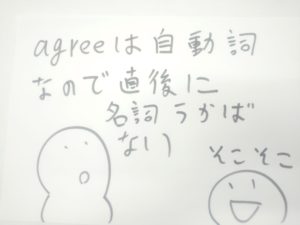 agreeは自動詞
なので直後に
名詞うかば
ない
そこそこ